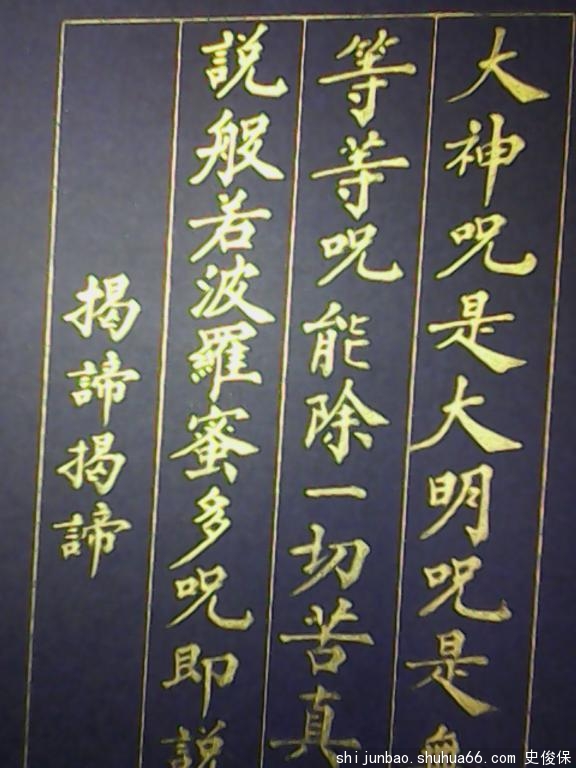 大神呪是大明呪是無
等等呪能除一切苦真
說般若波羅蜜多呪即説
揭諦揭諦
shijunbao.shuhua66.com 史俊保